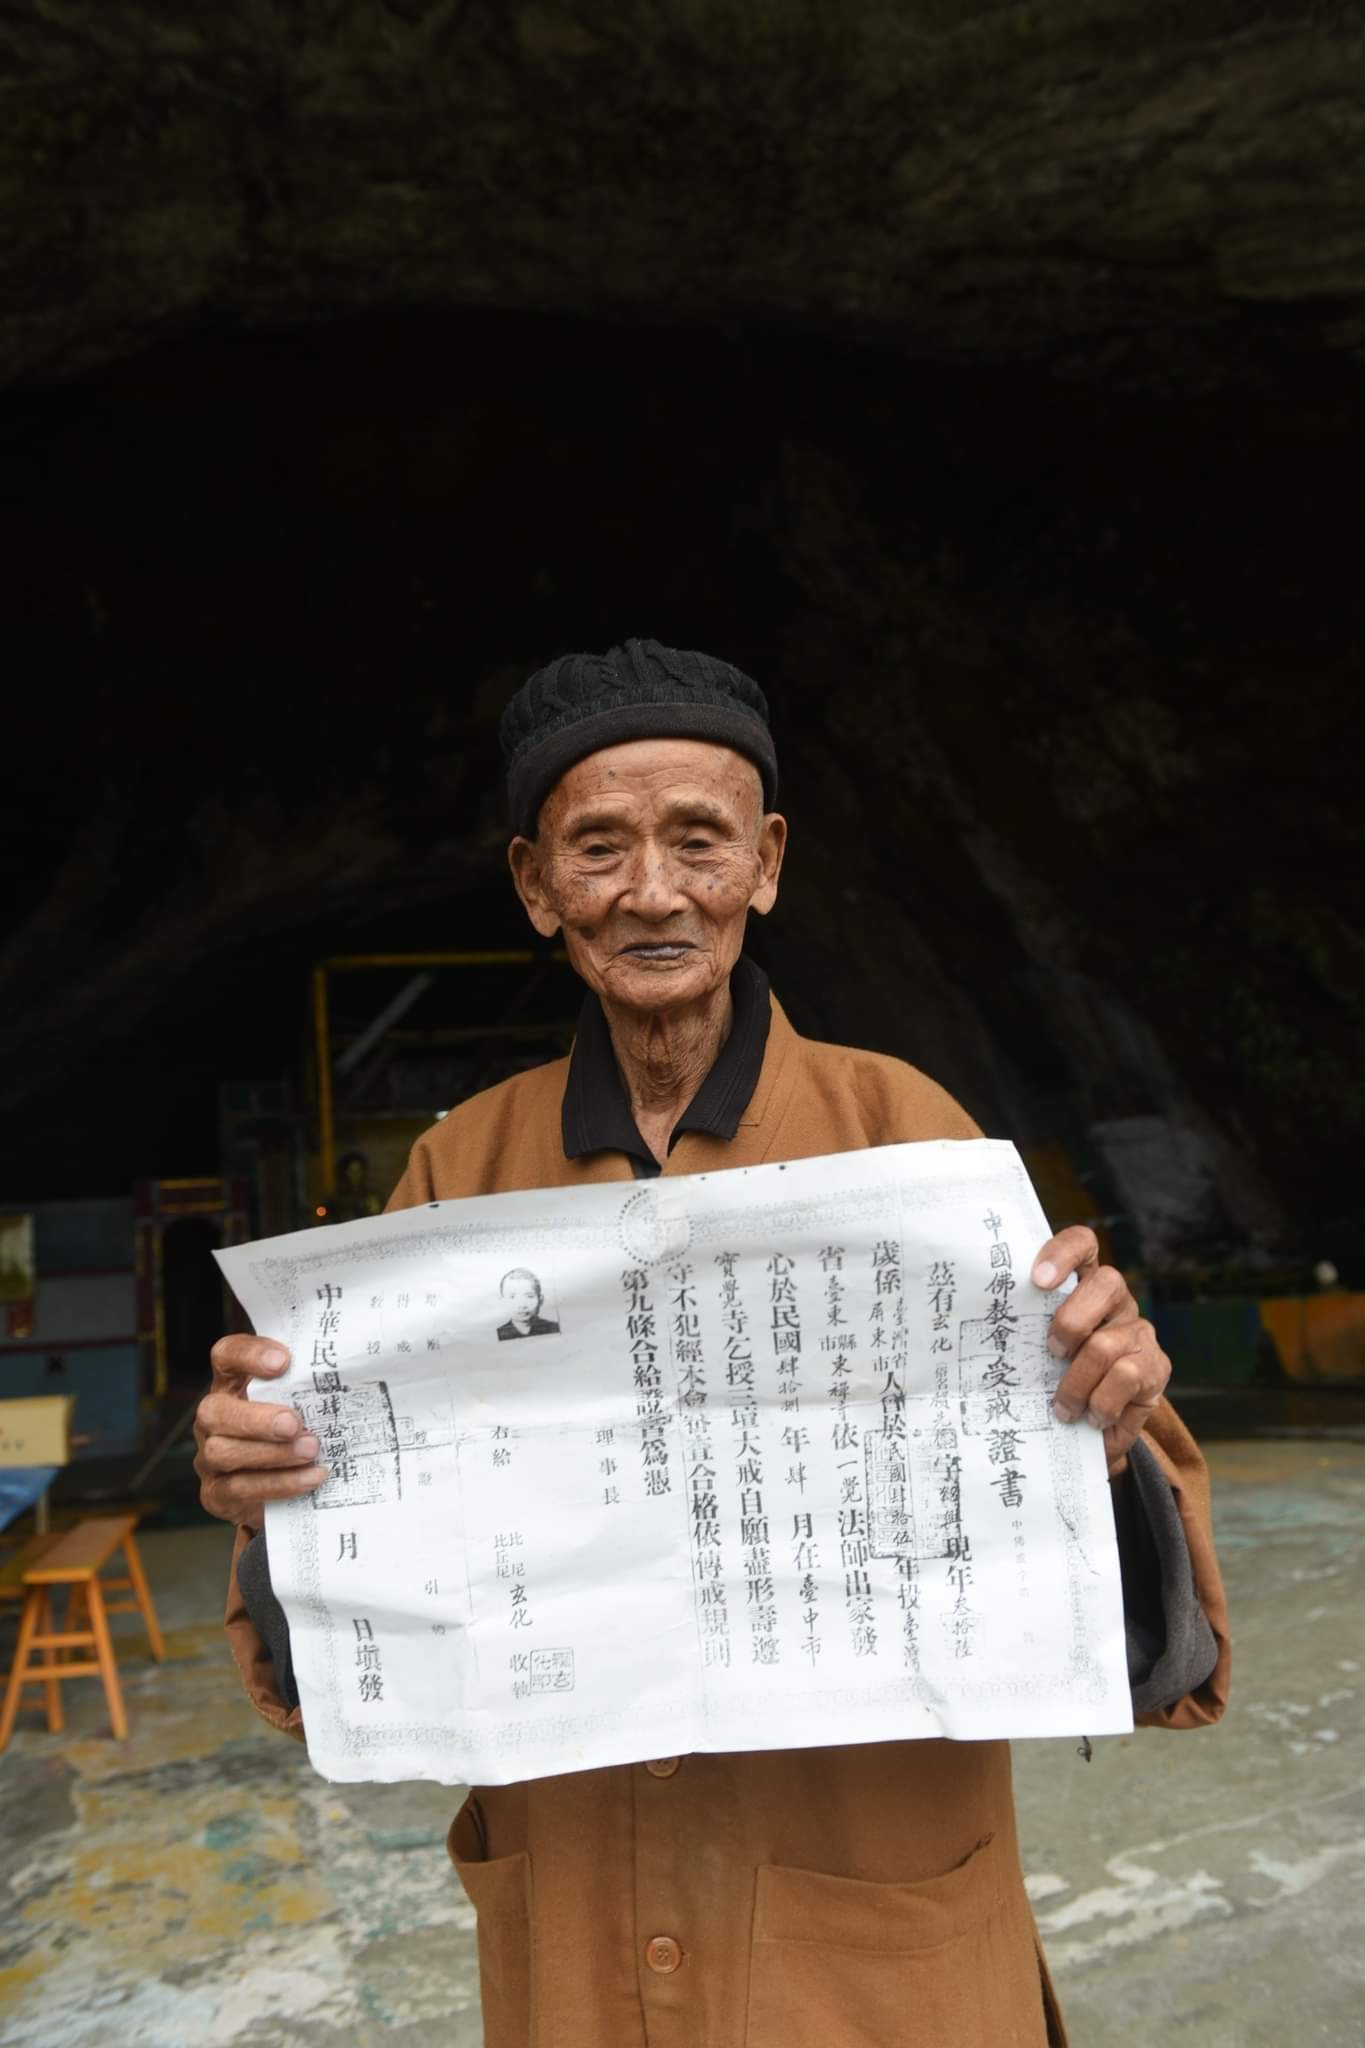 中國佛教會受戒證書
茲有玄化（俗名 字 現年叁拾陸
歲係臺灣省屏東市人曾於民國肆拾伍年投臺灣
省臺東縣市東禪寺依一覺法師出家發
心於民國肆拾捌年肆月在臺中市
寶覺寺乞授三壇大戒自願盡形壽遵
守不犯經本會審查合格依傳戒規則
第九條合給證書為憑
理事長
右給 比丘尼 玄化 收執
中華民國肆拾捌年 月 日填發